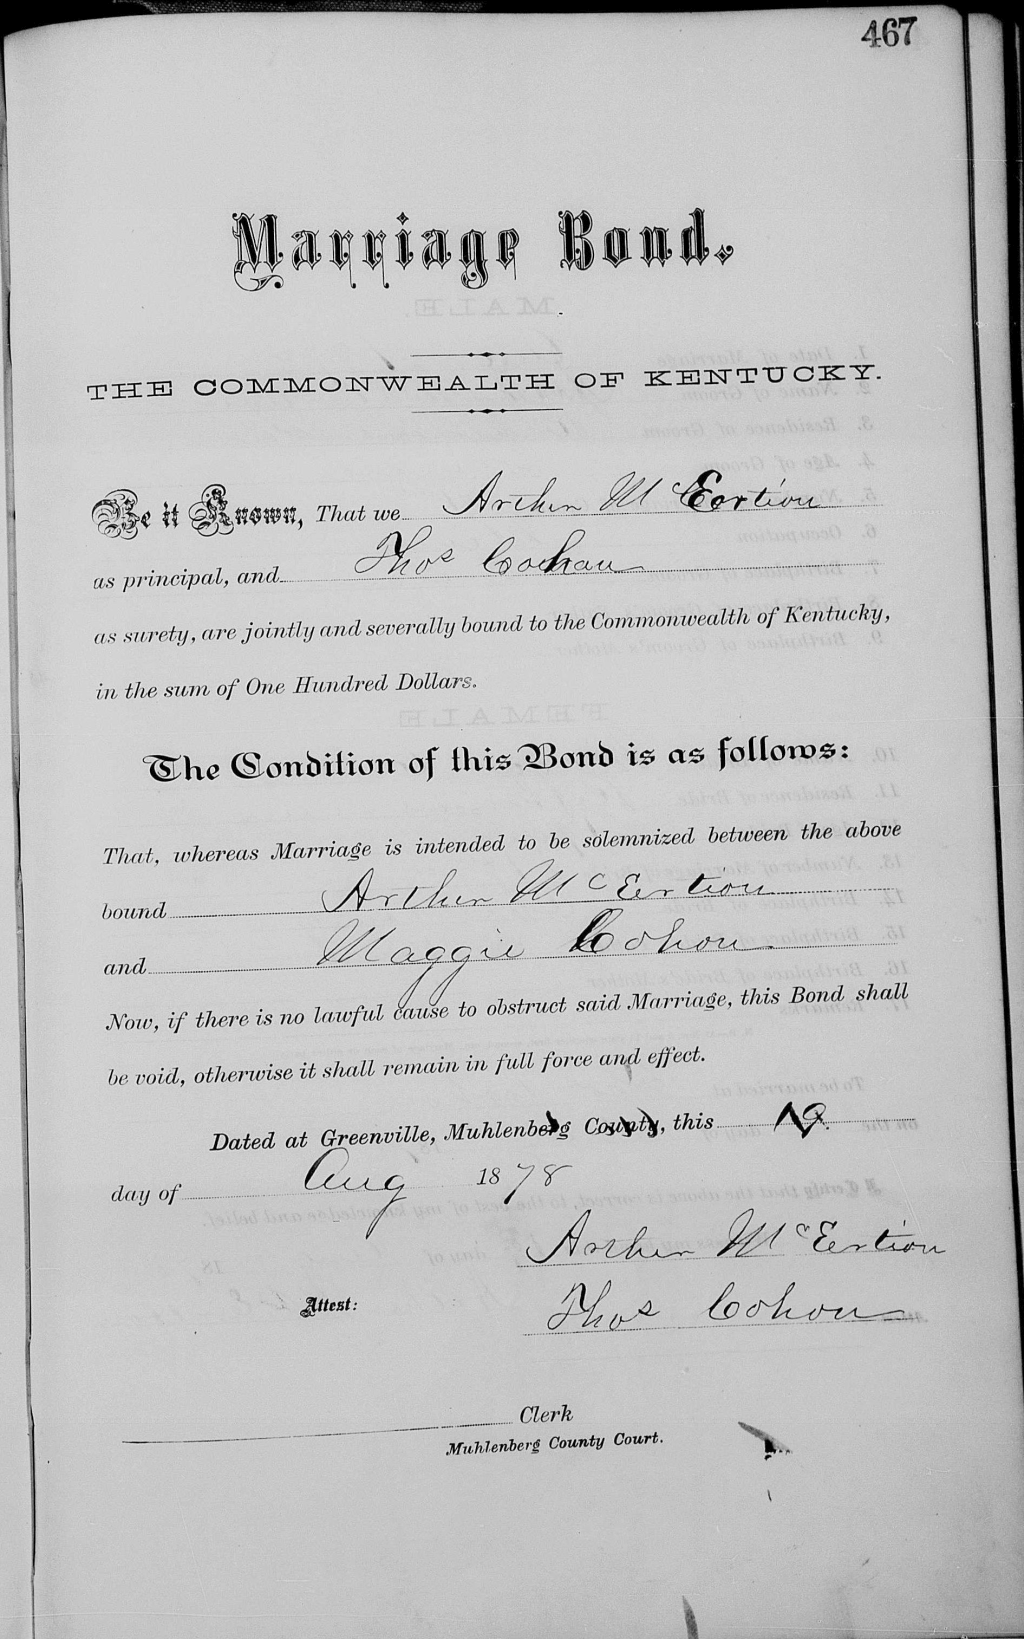 467
Marriage Bond.
THE COMMONWEALTH OF KENTUCKY.
Be it Known, That we Arther Mc Eertion
as principal, and Thos Cohan
as surety, are jointly and severally bound to the Commonwealth of Kentucky,
in the sum of One Hundred Dollars.
The Condition of this Bond is as follows:
That, whereas Marriage is intended to be solemnized between the above
bound Arther Mc Eertion
and Maggie Cohon
Now, if there is no lawful cause to obstruct said Marriage, this Bond shall
be void, otherwise it shall remain in full force and effect.
Dated at Greenville, Muhlenberg County, this 19.
day of Aug 1878
Arther Mc Eertion
Attest: Thos Cohon
Clerk
Muhlenberg County Court.